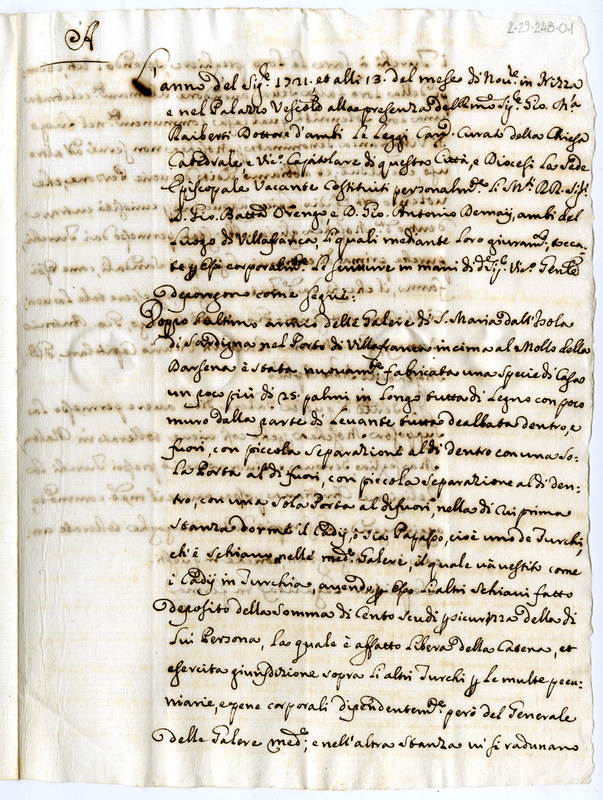 2-29-248-01
A
L'anno del Sig.e 1721. et alli 13. del mese di Nov.e in Nizza
e nel Palazzo Vescole alla presenza del Rmo Sig.e Gio. Ma
Raiberti Dottore d'ambi le Leggi Can.o Curato della Chiesa
Catedrale e Vic.o Capitolare di questa Città, e Diocesi la Sede
Episcopale Vacante Costituiti personalm.te li RR. Sig.i
D. Gio. Batta Orengo, e D. Gio. Antonio Demaij, ambi del
Luogo di Villafranca, li quali mediante loro giuram.to tocca-
te p Essi corporalm.te le scritture in mani di d.o Sig.e Vic.o Genle
Depongono come segue:
Doppo l'ultimo arrivo delle Galere di S. Maria dall'Isola
di Sardigna nel Porto di Villafranca in cima al Mollo della
Darsena è stata nuovam.te fabricata una specie di Casa
un poco più di 25. palmi in longo tutta di Legno con poco
muro dalla parte di Levante tutta dealbata dentro, e
fuori, con piccola separazione al di dentro con una so-
la Porta al di fuori, con piccola separazione al di den-
tro, con una sola Porta al di fuori, nella di cui prima
stanza dorme il Cadij, ò sia Papasso, cioè uno de Turchi,
ch'è Schiavo nelle med.e Galere, il quale và vestito come
i Cadij in Turchia, avendo p Esso li altri Schiavi fatto
deposito della somma di Cento scudi p sicurezza della di
lui Persona, la quale è affatto libera della Catena, et
esercita giurisdizione sopra li altri Turchi p le multe pecu-
niarie, e pene corporali dipendentem.te però del Generale
delle Galere med.e; e nell'altra stanza vi si radunano